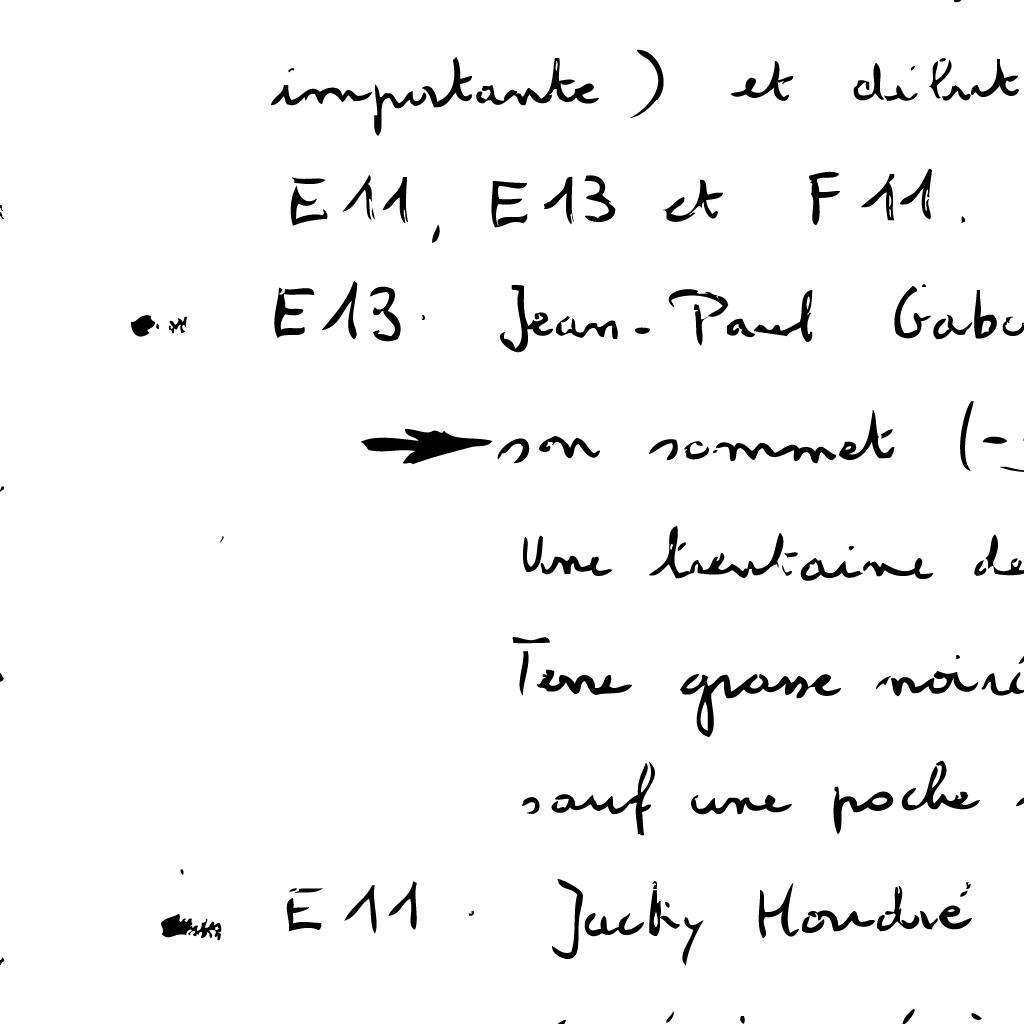 importante) et début
E11, E13 et F11.
E13. Jean-Paul
son sommet (-
Une trentaine de
Terre grasse
sauf une poche
E11. Jacky Hondré